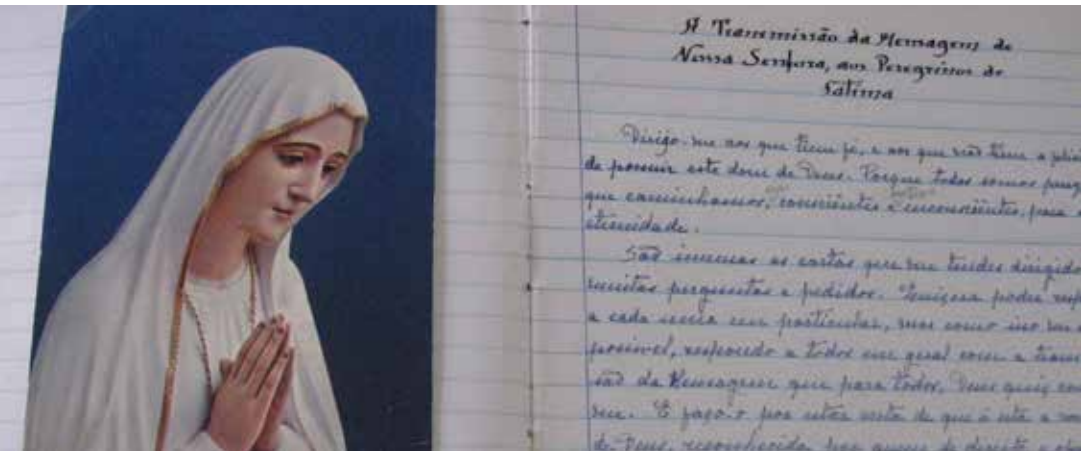 A Transmissão da Mensagem de
Nossa Senhora, aos Peregrinos de
Fátima
Dirijo-me aos que tiem fé, e aos que não tiem a
de possuir este dom de Deus. Porque todos somos
que caminhamos, consciêntes e inconsciêntes, para a
eternidade.
São imensas as cartas que me tendes dirigido
muitas perguntas e pedidos. Quizera poder
a cada uma em particular, mas como isso
possivel, respondo a todos em geral com a
são da Mensagem que para todos, Deus quiz
me. E faço-o por estar certa de que é esta a
de Deus, reconhecida por quem de direito